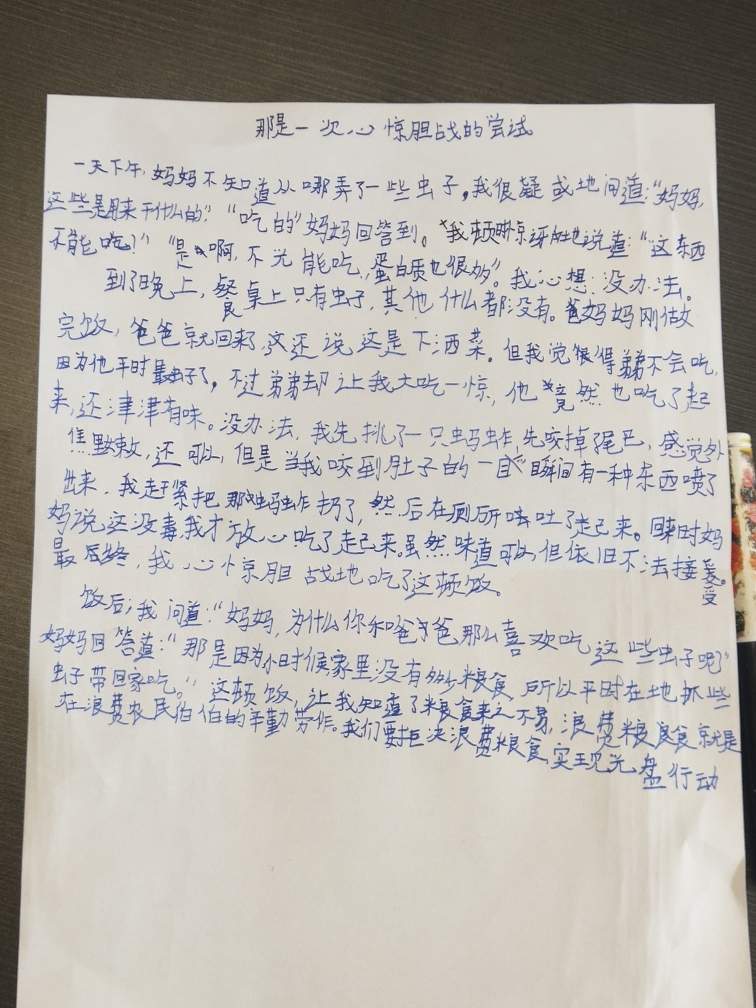 那是一次心惊胆战的尝试
一天下午,妈妈不知道从哪弄了一些虫子。我很疑或地问道:“妈妈,
这些是用来干什么的?”“吃的”妈妈回答到。我顿时惊讶地说道:“这东西
不能吃?”“是啊,不光能吃,蛋白质也很多”。我心想:没办法。
到了晚上,餐桌上只有虫子,其他什么都没有。爸妈妈刚做
完饭,爸爸就回来了,还说这是下洒菜。但我觉得弟弟不会吃,
因为他平时最虫子了。不过弟弟却让我大吃一惊,他竟然也吃了起
来,还津津有味。没办法,我先挑了一只蚂蚱,先咬掉尾巴,感觉外
焦嫩,还可以,但是当我咬到肚子的一瞬间有一种东西喷了
出来,我赶紧把那蚂蚱扔了,然后在厕所呕吐了起来。回来时妈
妈说这没毒,我才放心吃了起来。虽然味道可以,但依旧不法接受。
最终,我心惊胆战地吃了这顿饭。
饭后,我问道:“妈妈,为什么你和爸爸那么喜欢吃这些虫子呢?”
妈妈回答道:“那是因为小时候家里没有多少粮食,所以平时在地抓些
虫子带回家吃。”这顿饭,让我知道了粮食来之不易,浪费粮食就是
在浪费农民伯伯的辛勤劳作。我们要拒决浪费粮食,实现光盘行动